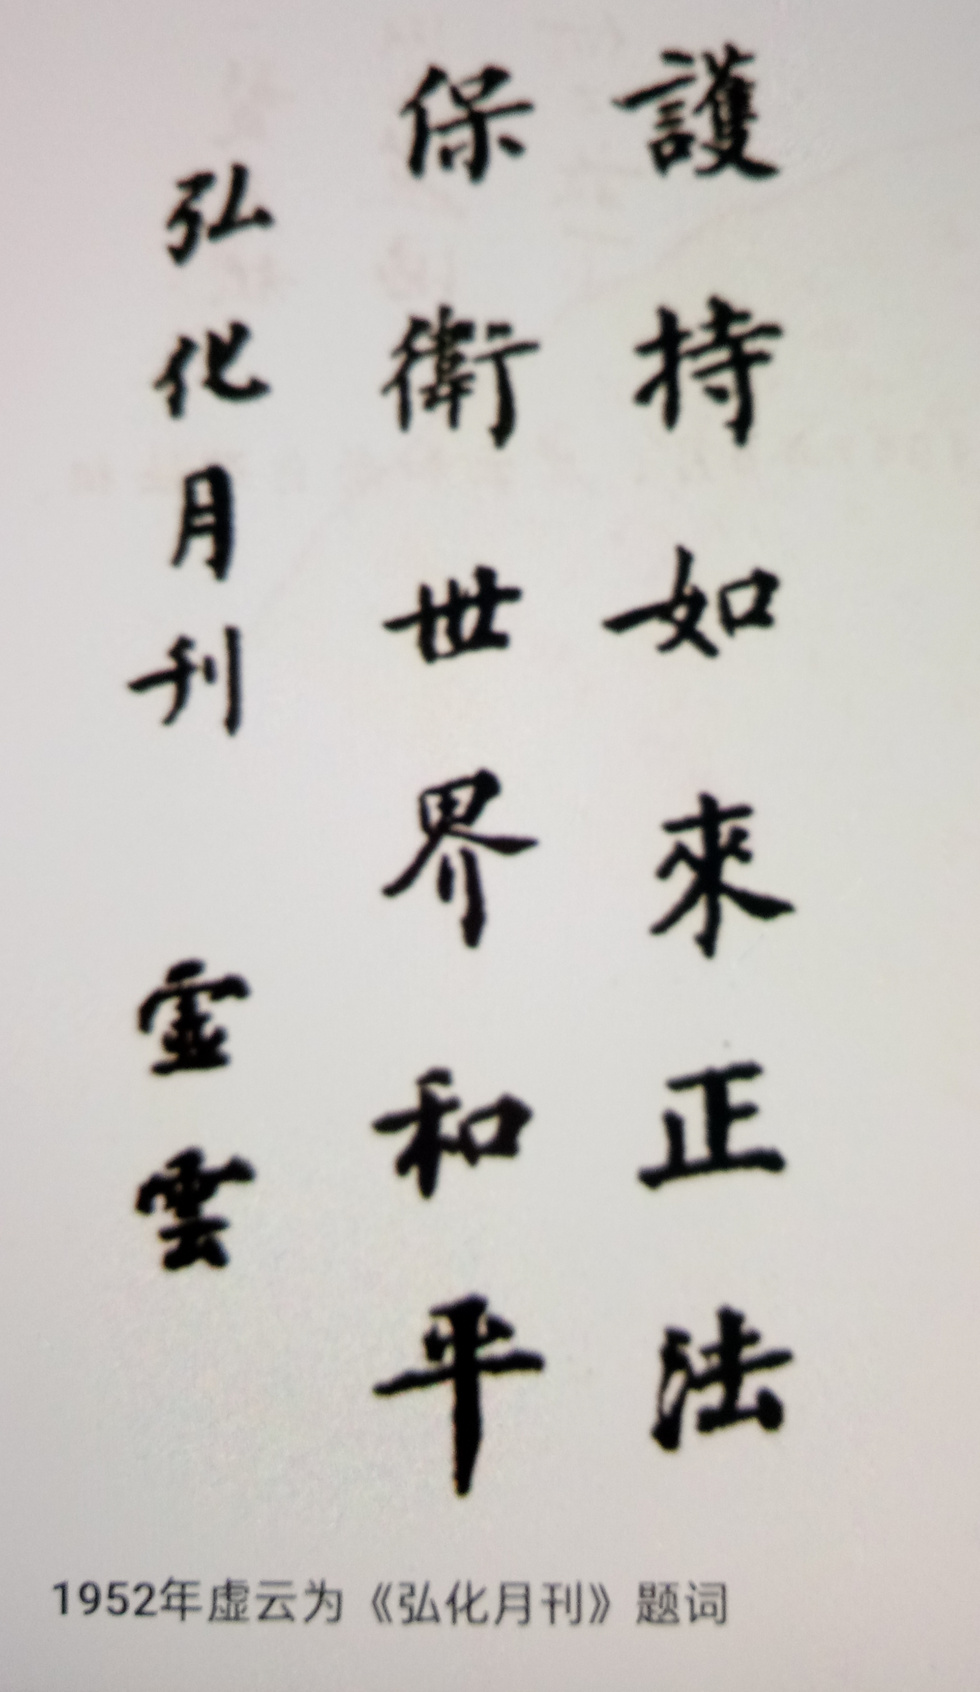 護持如來正法
保衛世界和平
弘化月刊 虛雲
1952年虚云为《弘化月刊》题词